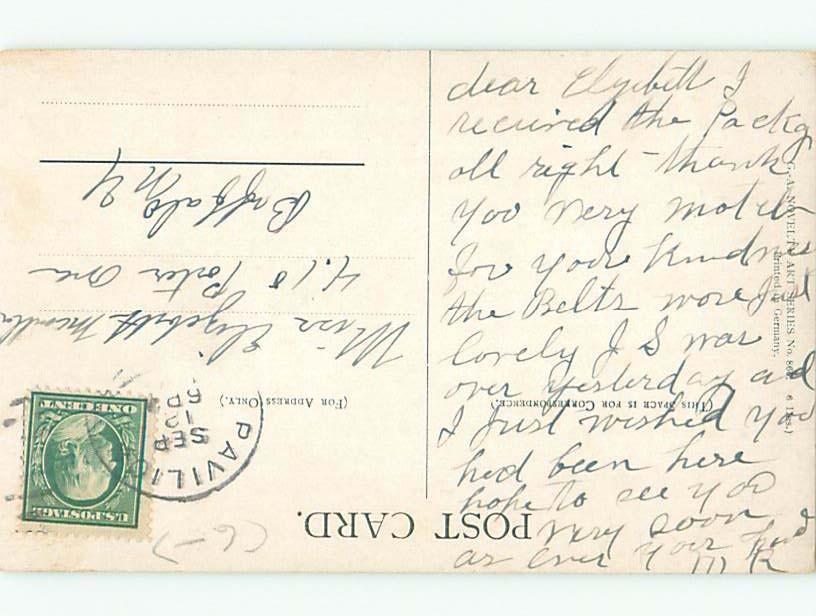 dear Elizibeth I
recieved the Packg
all right thank
you very motch
for your kindness
the Belts wore Just
lovely J S was
over yesterday and
I Just wished you
had been here
hope to see you
very soon
as ever your
M R
POST CARD.
(THIS SPACE IS FOR CORRESPONDENCE.)
(FOR ADDRESS ONLY.)
Miss Elizebeth
410 Porter Ave
Buffalo
N Y
G.-A. NOVELTY ART SERIES No.
Printed in Germany.
PAVILION
SEP
12
6 P
U.S. POSTAGE
ONE CENT